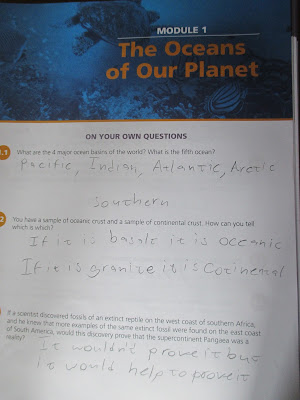 MODULE 1
The Oceans
of Our Planet
ON YOUR OWN QUESTIONS
1.1 What are the 4 major ocean basins of the world? What is the fifth ocean?
Pacific, Indian, Atlantic, Arctic
Southern
2 You have a sample of oceanic crust and a sample of continental crust. How can you tell
which is which?
If it is basalt it is oceanic
If it is granite it is Cotinental
If a scientist discovered fossils of an extinct reptile on the west coast of southern Africa,
and he knew that more examples of the same extinct fossil were found on the east coast
of South America, would this discovery prove that the supercontinent Pangaea was a
reality?
It wouldn't prove it but
it would help to prove it